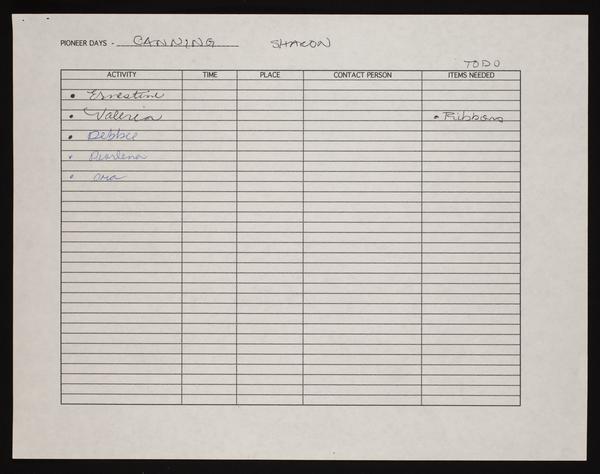 PIONEER DAYS - CANNING SHARON
TODO
ACTIVITY TIME PLACE CONTACT PERSON ITEMS NEEDED
• Ernestine
• Valeria • Ribbons
• Debbie
• Dorlena
• Ora